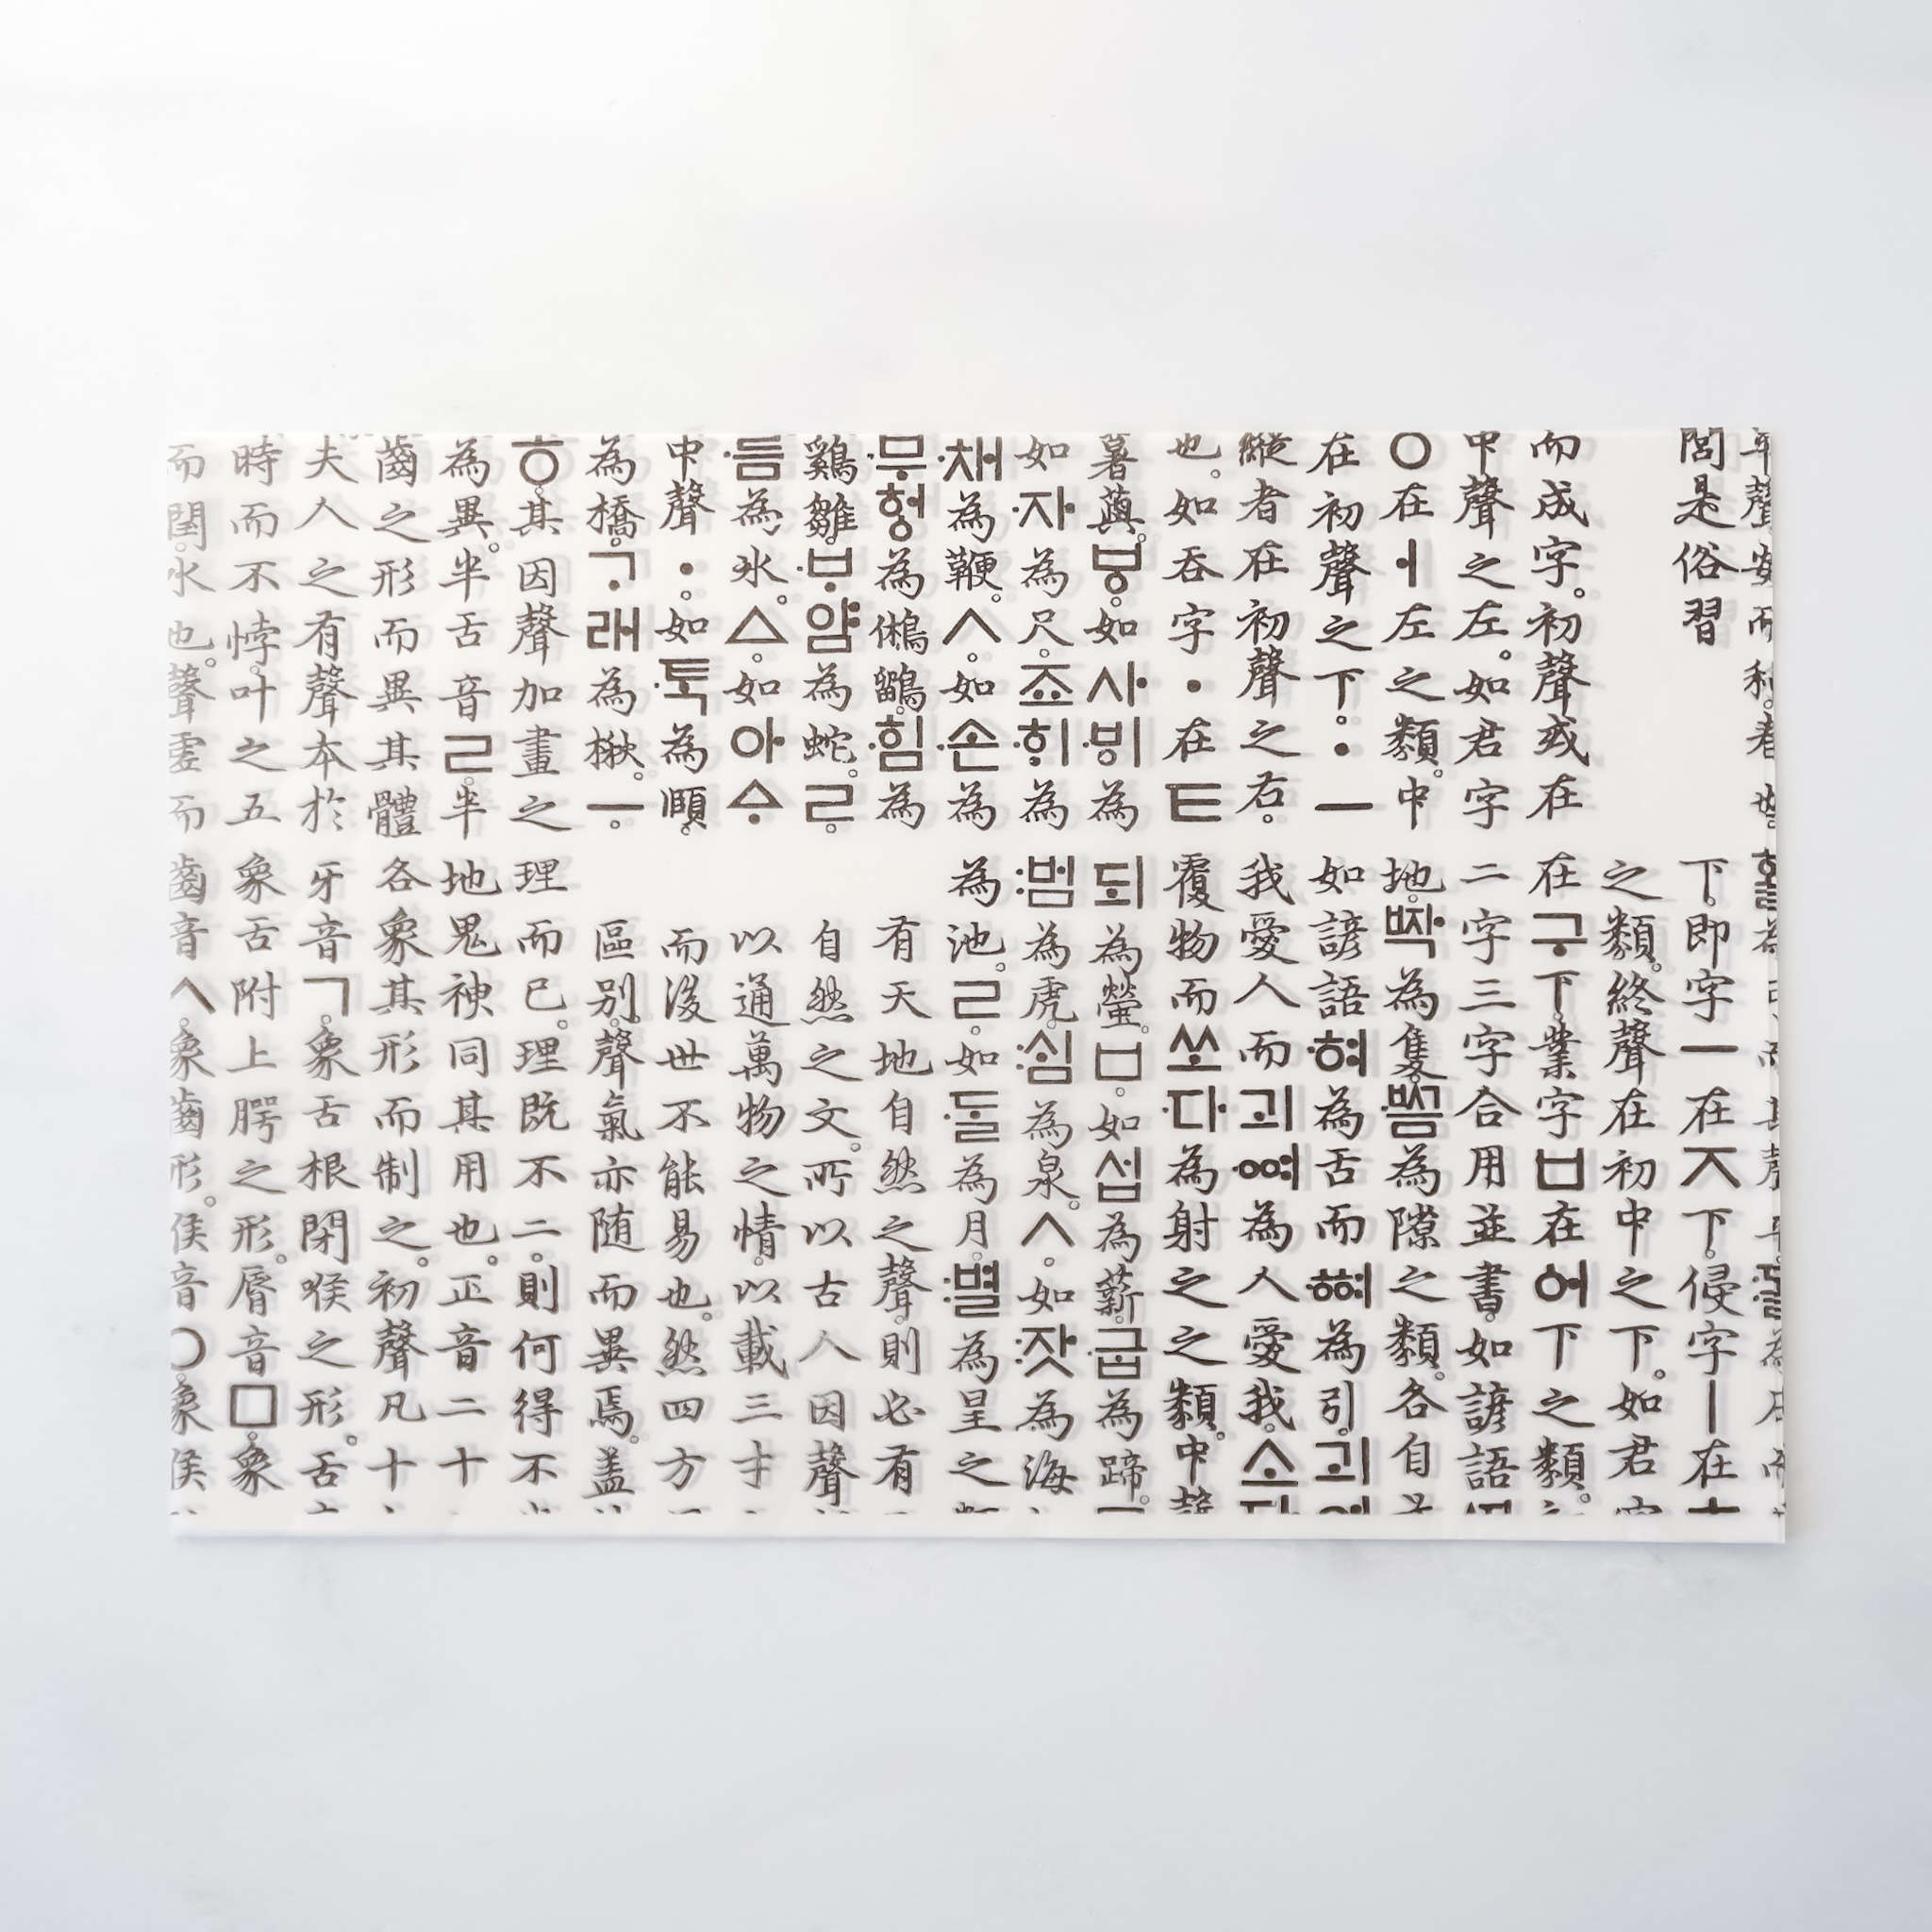 閭是俗習
而成字。初聲或在
中聲之左。如君字
ㅇ在ㅓ左之類。中
在初聲之下。•ㅡ
縱者在初聲之右。
也。如呑字•在ㅌ
薯藇。ㅸ。如사·ᄫᅵ為
如·자為尺。죠·ᄒᆡ為
·채為鞭。ㅅ。如·손為
헝為鵂鶹。·힘為
鷄雛。·ᄇᆞ얌為蛇。ㄹ。
름為氷。ㅿ。如아ᅀᆞ
中聲•如·ᄐᆞᆨ為頤。
為橋。ᄀᆞ래為楸。ㅡ。
ㅎ。其因聲加畫之
為異。半舌音ㄹ。半
齒之形而異其體
夫人之有聲本於
時而不悖。叶之五
而閏。水也。聲虛而
下。即字ㅡ在ㅈ下。侵字ㅣ在
之類。終聲在初中之下。如君
在구下。業字ㅂ在어下之類。
二字三字合用並書。如諺語
地。ᄧᅡᆨ為隻。ᄢᅳᆷ為隙之類。各自
如諺語·혀為舌而·ᅘᅧ為引。괴
我愛人而괴·ᅇᅧ為人愛我。소
覆物而쏘·다為射之之類。中
되為螢。ㅁ。如섭為薪。·굽為蹄。
:범為虎。:ᄉᆡᆷ為泉。ㅅ。如:잣為海
為池。ㄹ。如·ᄃᆞᆯ為月。:별為星之
有天地自然之聲。則必有
自然之文。所以古人因聲
以通萬物之情。以載三才
而後世不能易也。然四方
區别。聲氣亦随而異焉。盖
理而已。理既不二。則何得不
地鬼神同其用也。正音二十
各象其形而制之。初聲凡十
牙音ㄱ。象舌根閉喉之形。舌
象舌附上腭之形。脣音ㅁ。象
齒音ㅅ。象齒形。喉音ㅇ。象喉